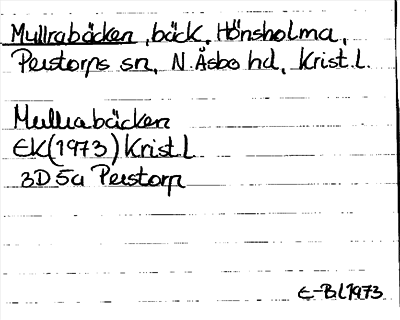 Mullrabäcken, bäck, Hönsholma,
Perstorps sn, N. Åsbo hd, Krist. l.
Mullrabäcken
EK (1973) Krist. l
3D 5a Perstorp
E-B.L 1973